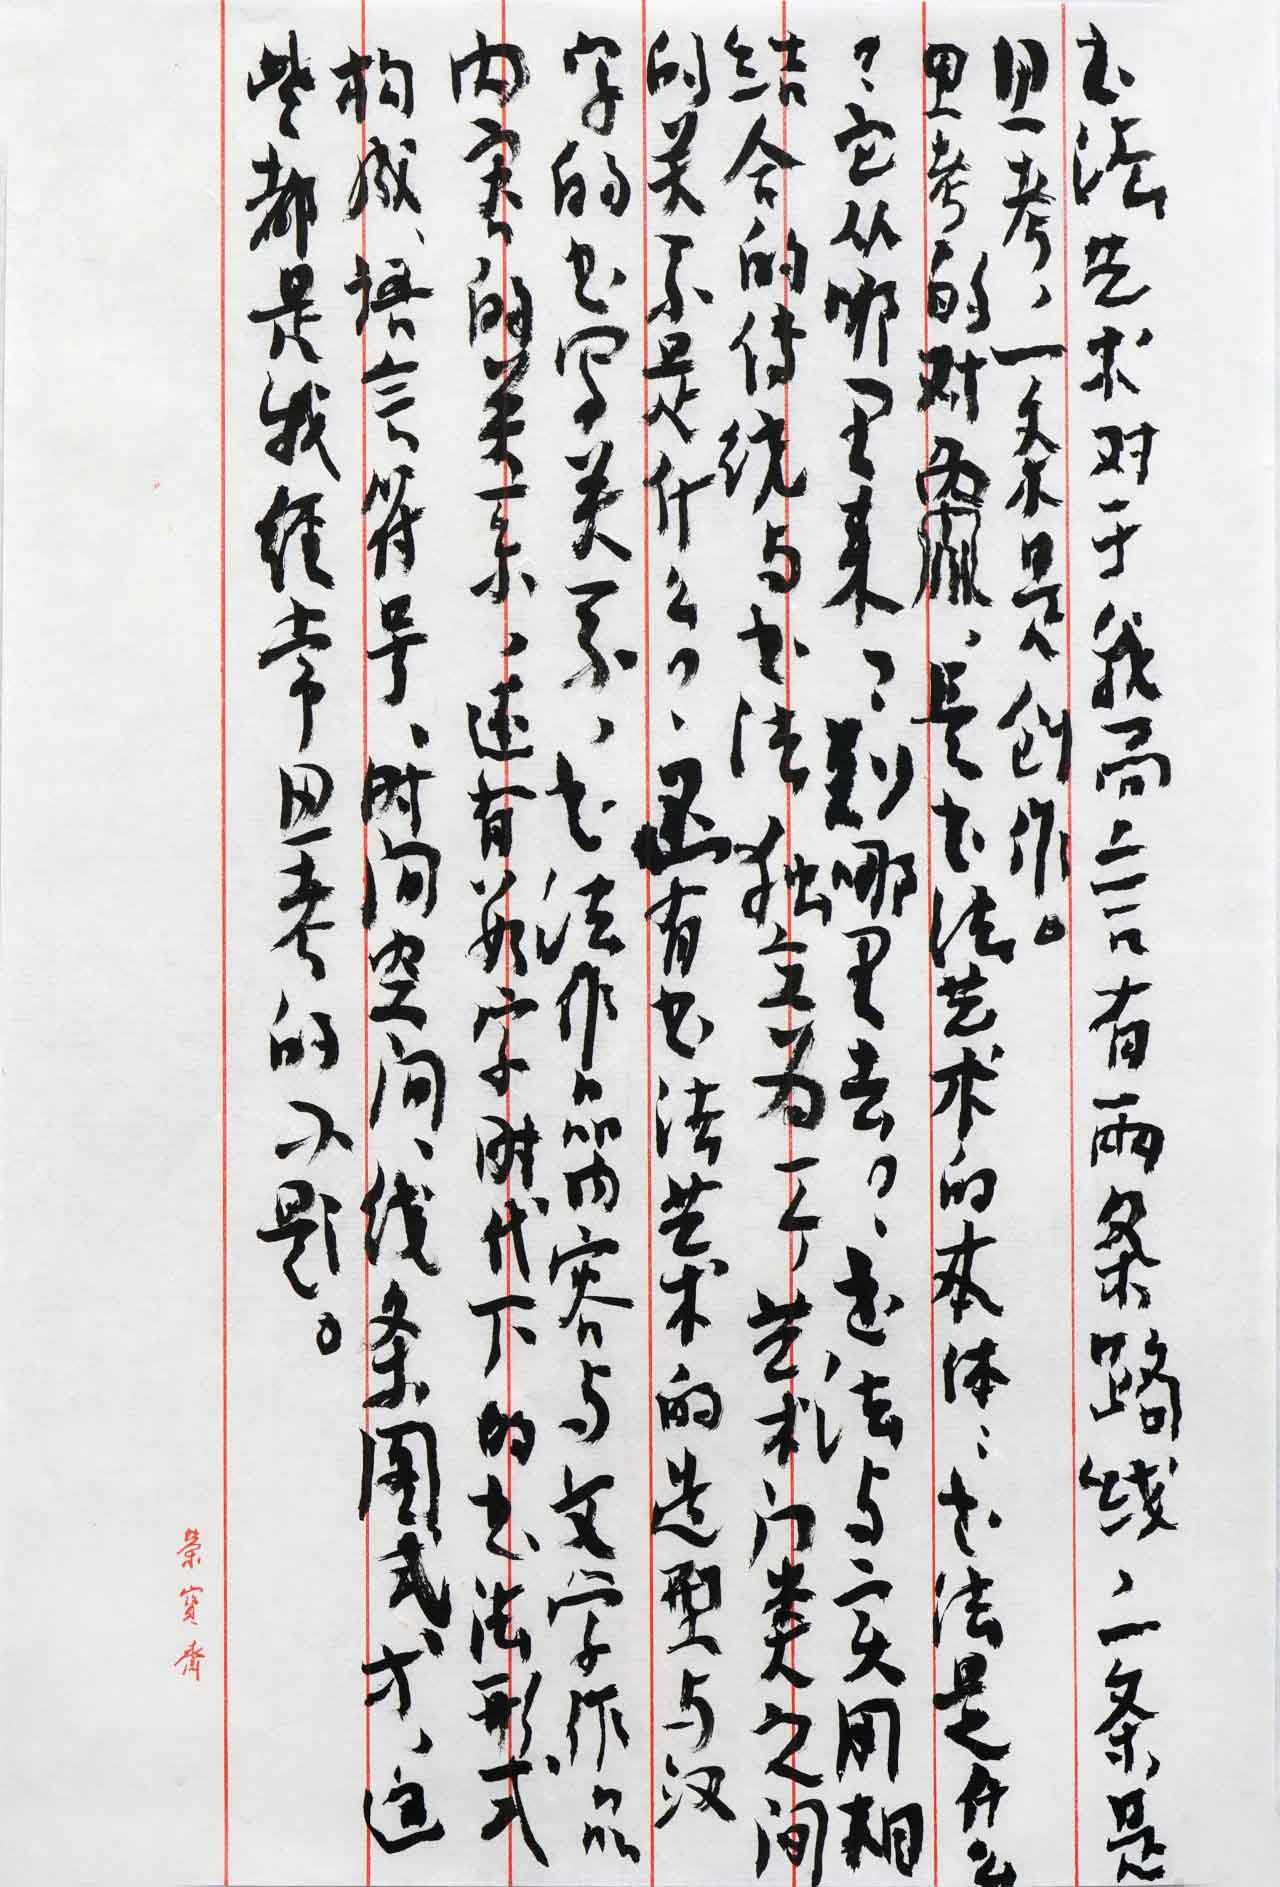 书法艺术对于我而言有两条路线，一条是
思考，一条是创作。
思考的对象，是书法艺术的本体：书法是什么
？它从哪里来？到哪里去？书法与实用相
结合的传统与书法独立为一个艺术门类之间
的关系是什么？还有书法艺术的造型与汉
字的书写关系，书法作品内容与文学作品
内容的关系，还有数字时代下的书法形式
构成、语言符号、时间空间、线条图式才，这
些都是我经常思考的问题。
荣宝斋